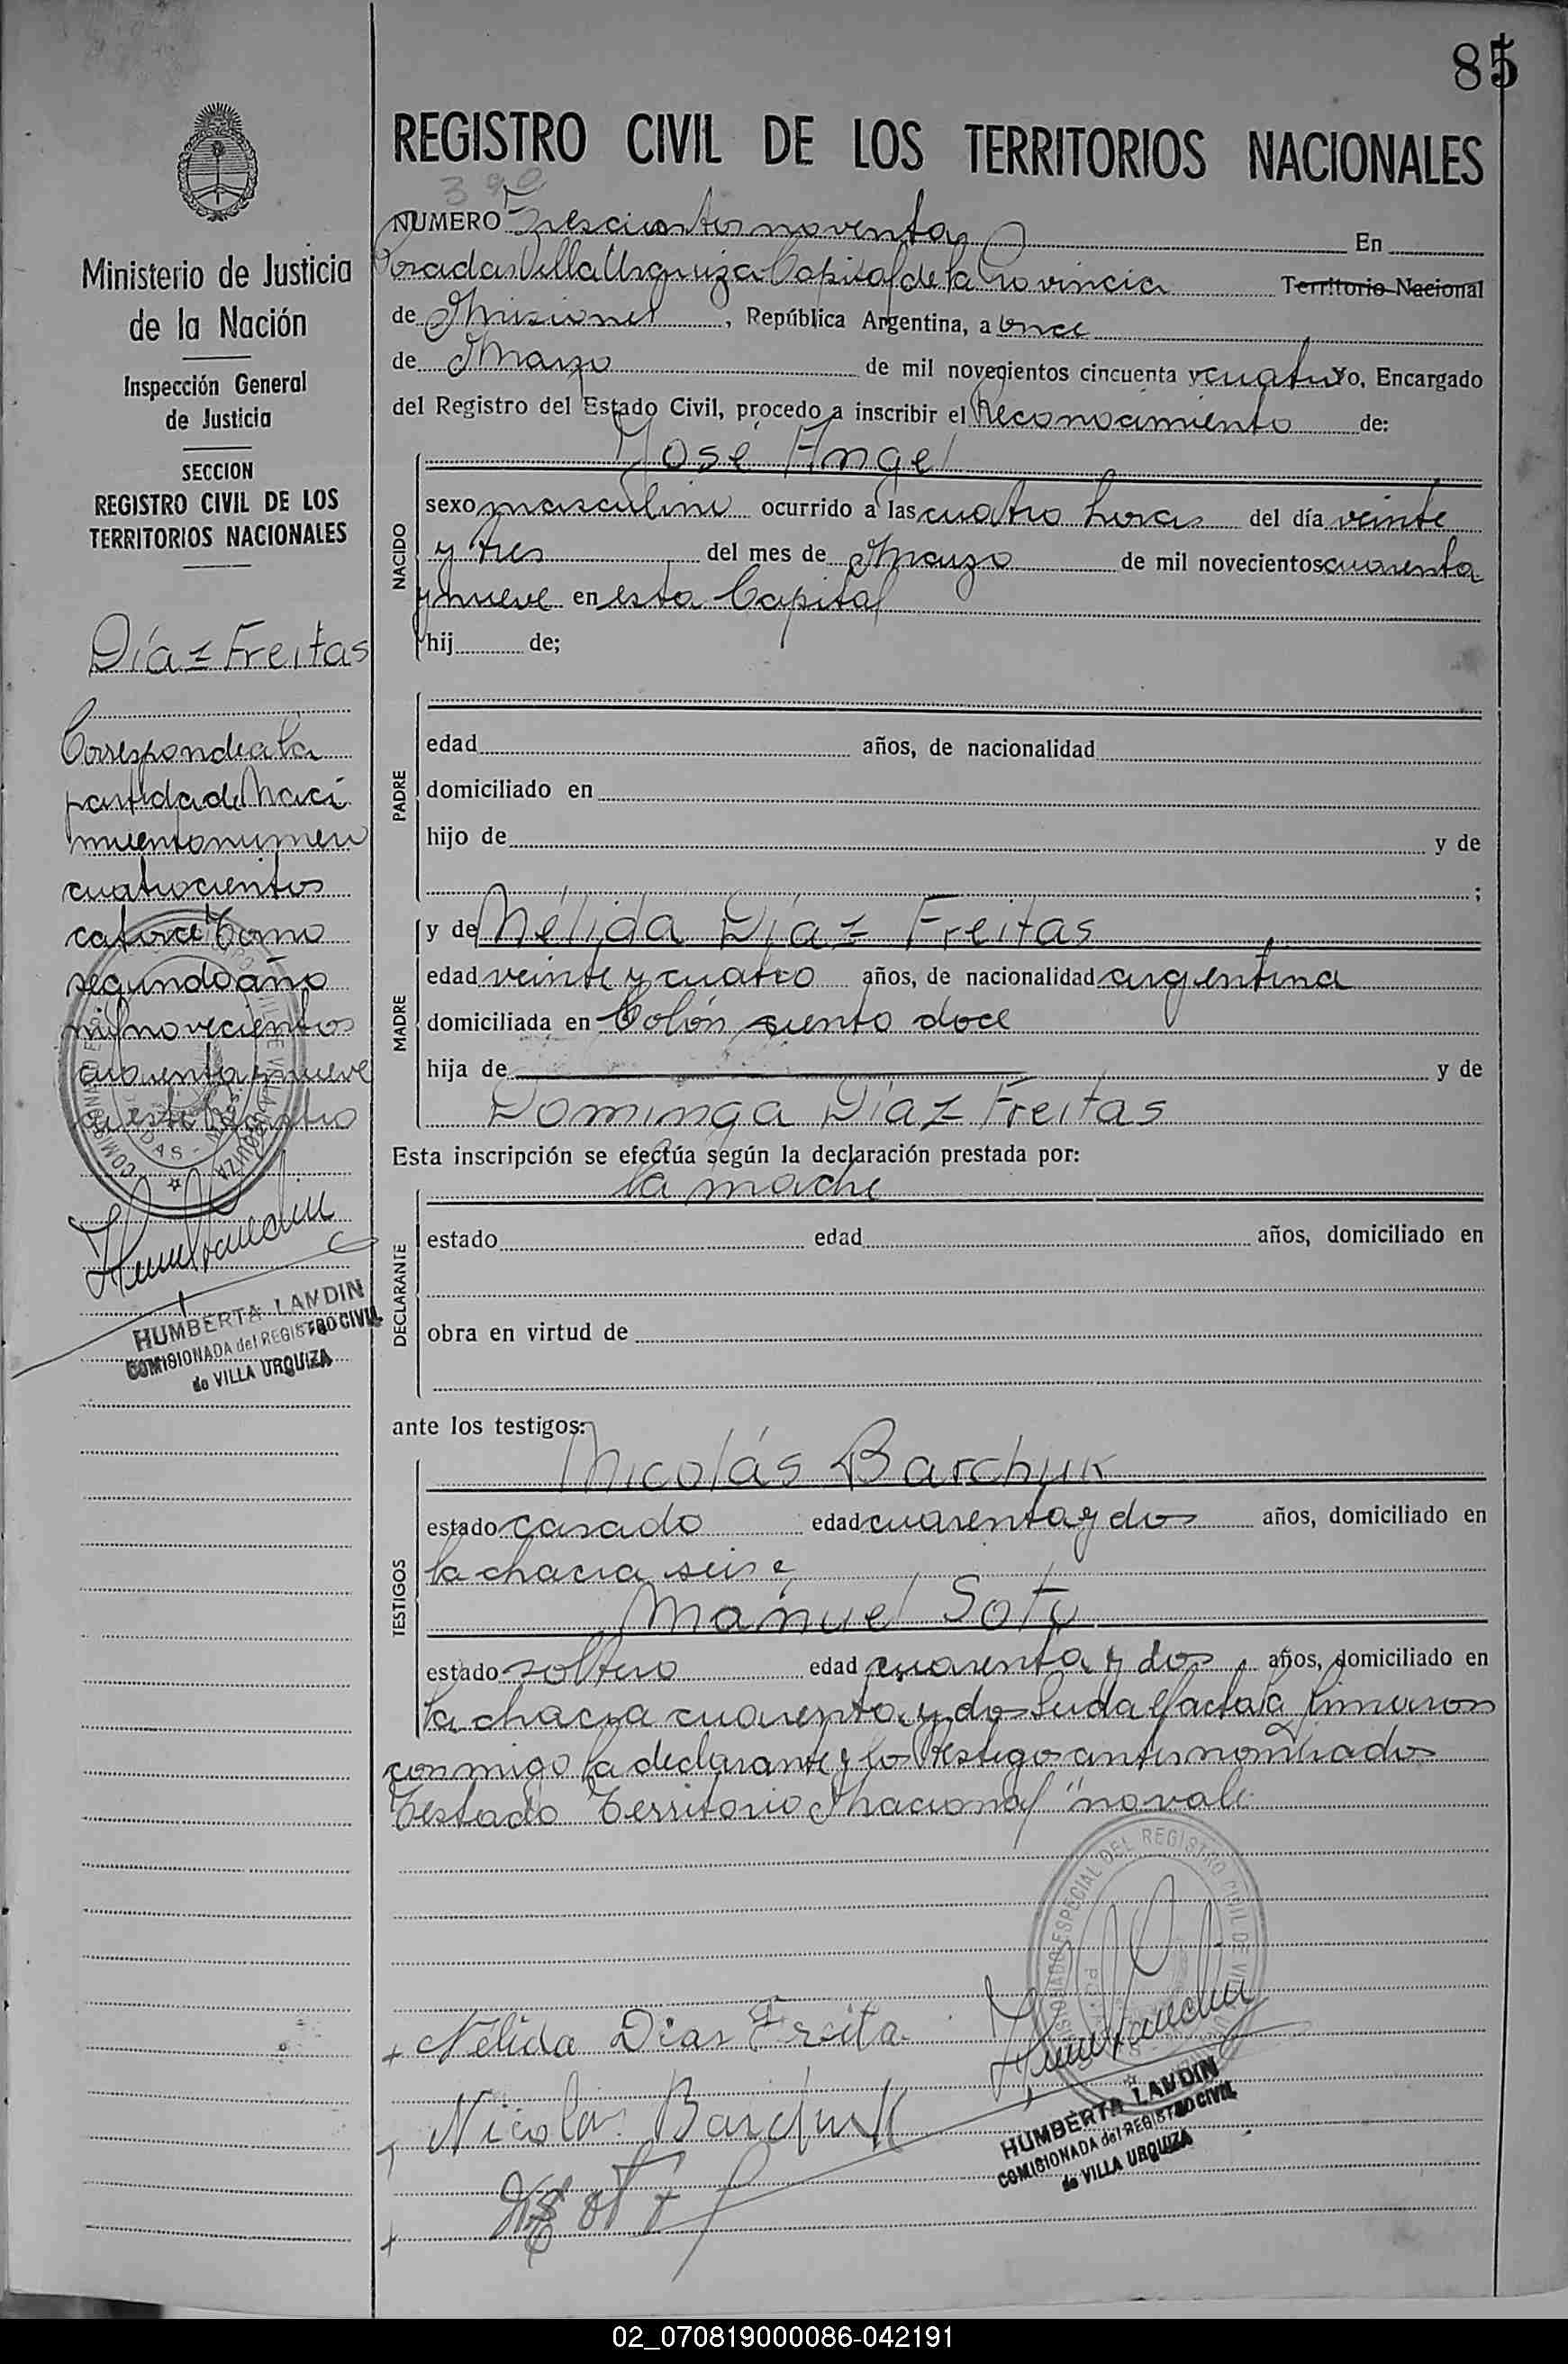 85
REGISTRO CIVIL DE LOS TERRITORIOS NACIONALES
390
NUMERO Trescientos noventa En
Posadas Villa Urquiza Capital de la Provincia Territorio Nacional
de Misiones, República Argentina, a once
de Marzo de mil novecientos cincuenta y cuatro Yo, Encargado
del Registro del Estado Civil, procedo a inscribir el Reconocimiento de:
José Angel
NACIDO
sexo masculino ocurrido a las cuatro horas del día veinte
y tres del mes de Marzo de mil novecientos cuarenta
y nueve en esta Capital
hij de;
PADRE
edad años, de nacionalidad
domiciliado en
hijo de y de
;
MADRE
y de Nélida Díaz Freitas
edad veinte y cuatro años, de nacionalidad argentina
domiciliada en Colón ciento doce
hija de y de
Dominga Díaz Freitas
Esta inscripción se efectúa según la declaración prestada por:
la madre
DECLARANTE
estado edad años, domiciliado en
obra en virtud de
ante los testigos:
Nicolás Barchuk
TESTIGOS
estado casado edad cuarenta y dos años, domiciliado en
la chacra seis e
Manuel Soty
estado soltero edad cuarenta y dos años, domiciliado en
la chacra cuarenta y dos Leida el acta la firmaron
conmigo la declarante y los testigos antes nombrados
Testado "Territorio Nacional" no vale
Nelida Dias Freita
Nicolas Barchuk
HUMBERTA LANDIN
COMISIONADA del REGISTRO CIVIL
de VILLA URQUIZA
Ministerio de Justicia
de la Nación
Inspección General
de Justicia
SECCION
REGISTRO CIVIL DE LOS
TERRITORIOS NACIONALES
Díaz Freitas
Corresponde a la
partida de Naci
miento numero
cuatrocientos
catorce Tomo
segundo año
mil novecientos
cuarenta y nueve
HUMBERTA LANDIN
COMISIONADA del REGISTRO CIVIL
de VILLA URQUIZA
02_070819000086-042191